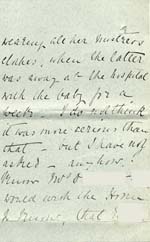 wearing all her mistress
clothes, when the latter
was away at the hospital
with the baby for a
week. I do not think
it was more serious than
that – but I have not
asked – anyhow,
know
would wish the Home
that